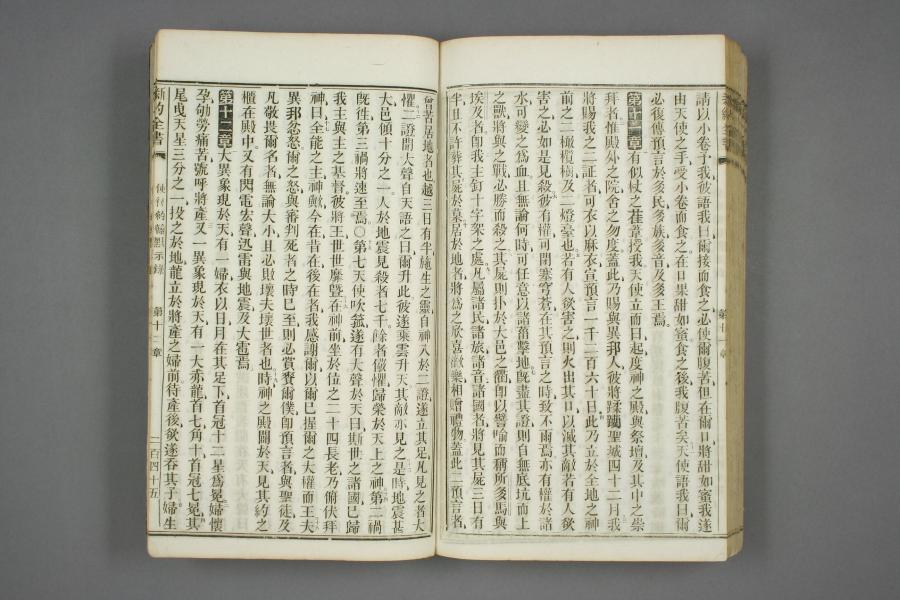 請以小卷予我彼語我曰爾接而食之必使爾腹苦但在爾口將甜如蜜我遂
由天使之手受小卷而食之在口果甜如蜜食之後我腹苦矣天使語我曰爾
必復傳預言於多民多族多音及多王焉
第十一章有似杖之葦授我天使立而曰起度神之殿與祭壇及其中之崇
拜者惟殿外之院舍之勿度蓋此乃賜與異邦人彼將蹂躪聖城四十二月我
將賜我之二証者可衣以麻衣宣預言一千二百六十日此乃立於全地之神
前之二橄欖樹及二燈臺也若有人欲害之則火出其口以滅其敵若有人欲
害之必如是見殺彼有權可閉塞穹蒼在其預言之時致不雨焉亦有權於諸
水可變之為血且無論何時可任意以諸菑擊地旣盡其證則自無底坑而上
之獸將與之戰必勝而殺之其屍則扑於大邑之衢卽以譬喻而稱所多馬與
埃及者卽我主釘十字架之處凡屬諸民諸族諸音諸國者將見其屍三日有
半且不許葬其屍於墓居於地者將為之欣喜歡樂相贈禮物蓋此二預言者
曾苦居地者也越三日有半施生之靈自神入於二證遂立其足凡見之者大
懼二證聞大聲自天語之曰爾升此彼遂乘雲升天其敵亦見之是時地震甚
大邑傾十分之一人於地震見殺者七千餘者儆懼歸榮於天上之神第二禍
旣往第三禍將速至焉〇第七天使吹箛遂有大聲於天曰斯世之諸國已歸
我主與主之基督彼將王世世靡曁在神前坐於位之二十四長老乃俯伏拜
神曰全能之主神歟今在昔在後在者我感謝爾以爾已握爾之大權而王夫
異邦忿怒爾之怒與審判死者之時已至則必賞賚爾僕卽預言者與聖徒及
凡敬畏爾名者無論大小且必敗壞夫壞世者也時神之殿闢於天見其約之
櫃在殿中又有閃電宏聲迅雷與地震及大雹焉
第十二章大異象現於天有一婦衣以日月在其足下首冠十二星為冕婦懷
孕劬勞痛苦號呼將產又一異象現於天有一大赤龍首七角十首冠七冕其
尾曳天星三分之一投之於地龍立於將產之婦前待產後欲遂吞其子婦生
新約全書
第十二章
二百四十五